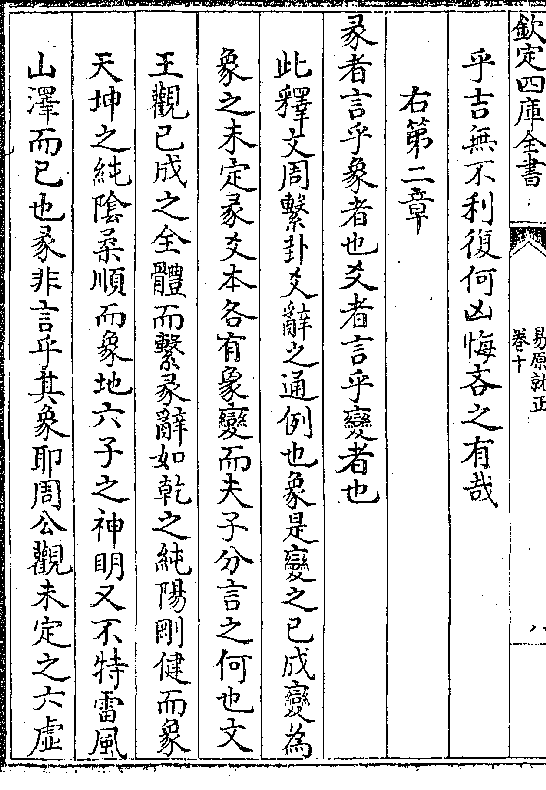 欽定四庫全書
易原就正
卷十
八
乎吉無不利復何凶悔吝之有哉
右第二章
彖者言乎象者也爻者言乎變者也
此釋文周繫卦爻辭之通例也象是變之已成變為
象之未定彖爻本各有象變而夫子分言之何也文
王觀已成之全體而繫彖辭如乾之純陽剛健而象
天坤之純陰柔順而象地六子之神明又不特雷風
山澤而已也彖非言乎其象耶周公觀未定之六虛